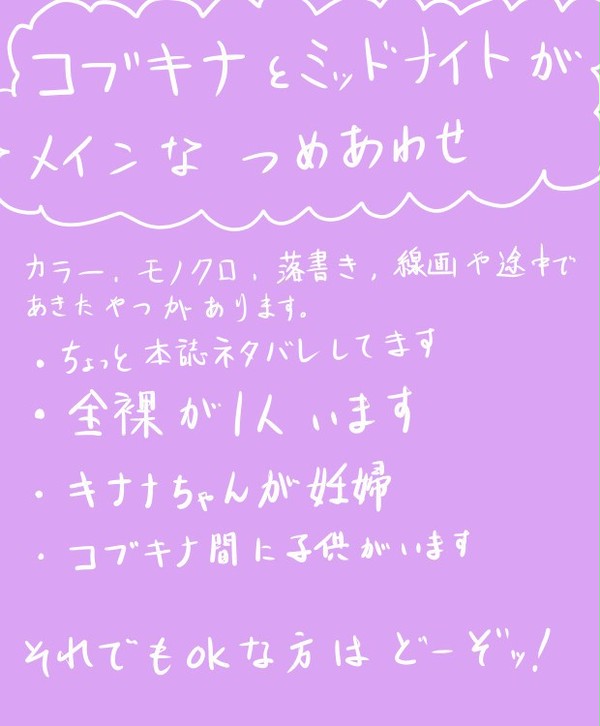 コブキナとミッドナイトが
メインな つめあわせ
カラー、モノクロ、落書き、線画や途中で
あきたやつがあります。
・ちょっと本誌ネタバレしてます
・全裸が1人います
・キナナちゃんが妊婦
・コブキナ間に子供がいます
それでもokな方はどーぞッ!